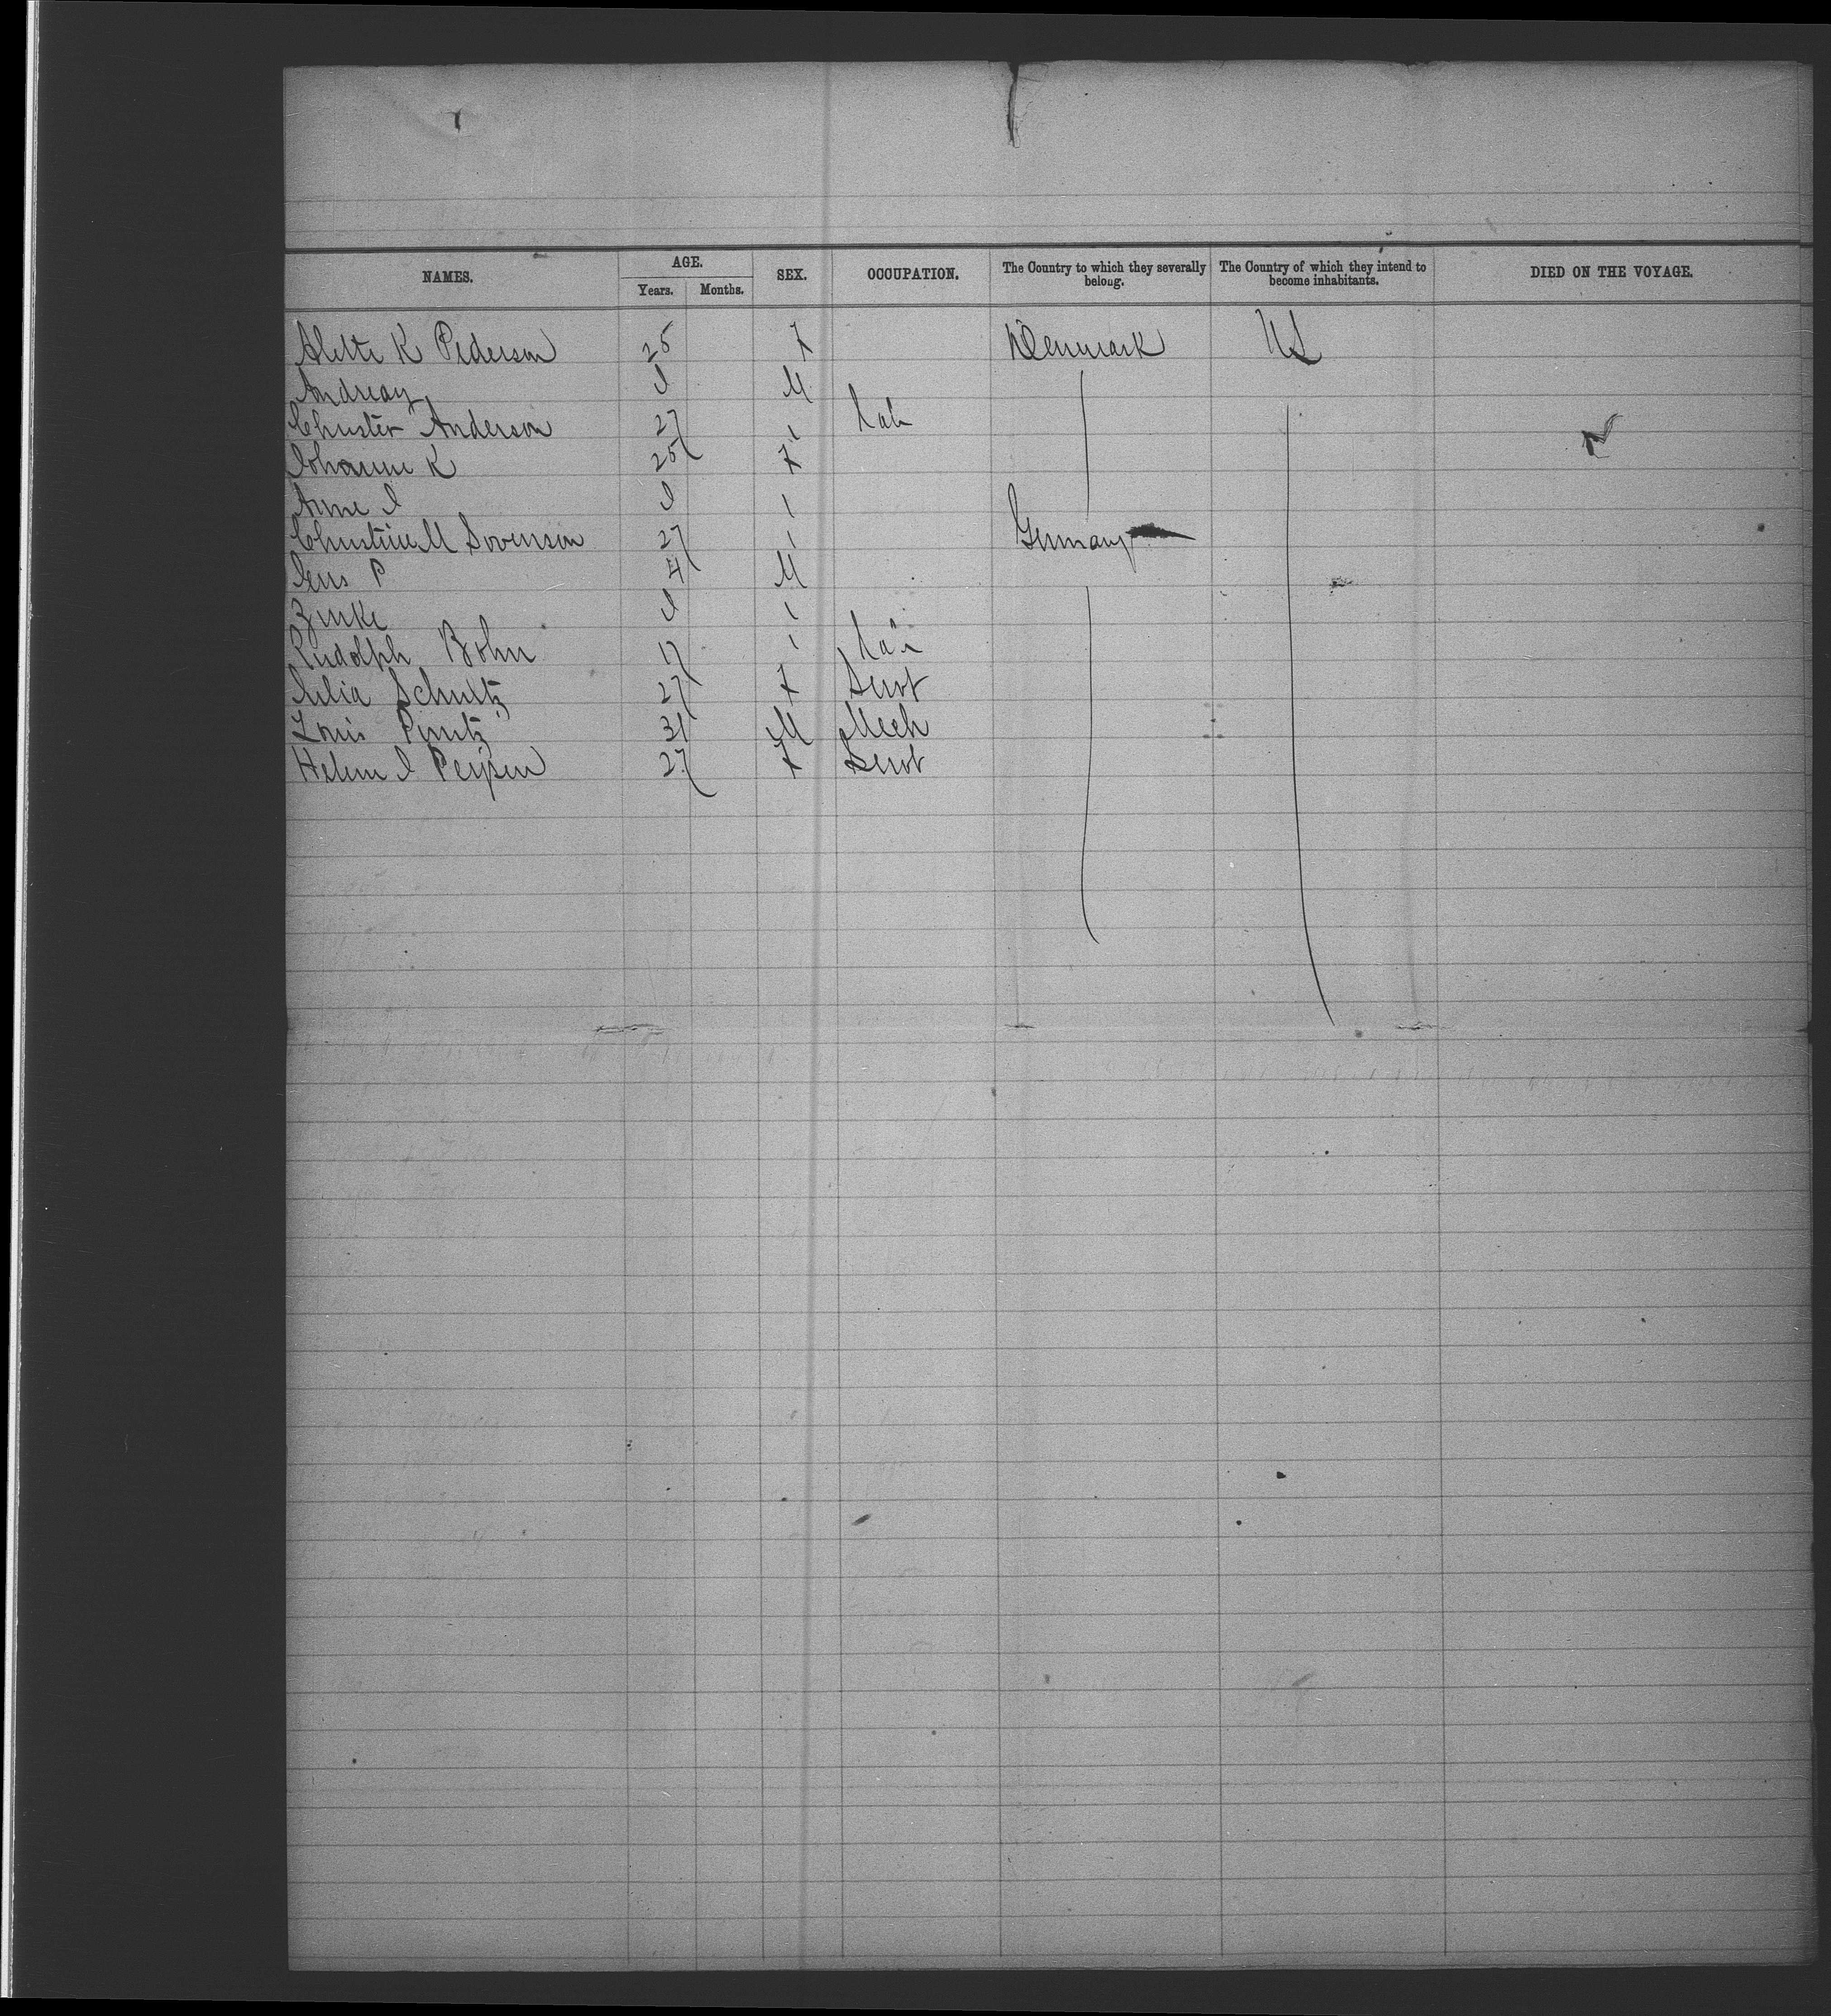 NAMES. AGE. SEX. OCCUPATION. The Country to which they severally belong. The Country of which they intend to become inhabitants. DIED ON THE VOYAGE.
Years. Months.
Alette K Pederson 25 F Denmark US
Andreas I M
Christer Anderson 27 " Lab
Johanne K 25 F
Anne I "
Christine M Sorenson 27 " Germany
Jens P 4 M
I "
Rudolph Bohn 17 "
Julia Schultz 27 F Servt
Louis 31 M Mech
Helene I 27 F Servt